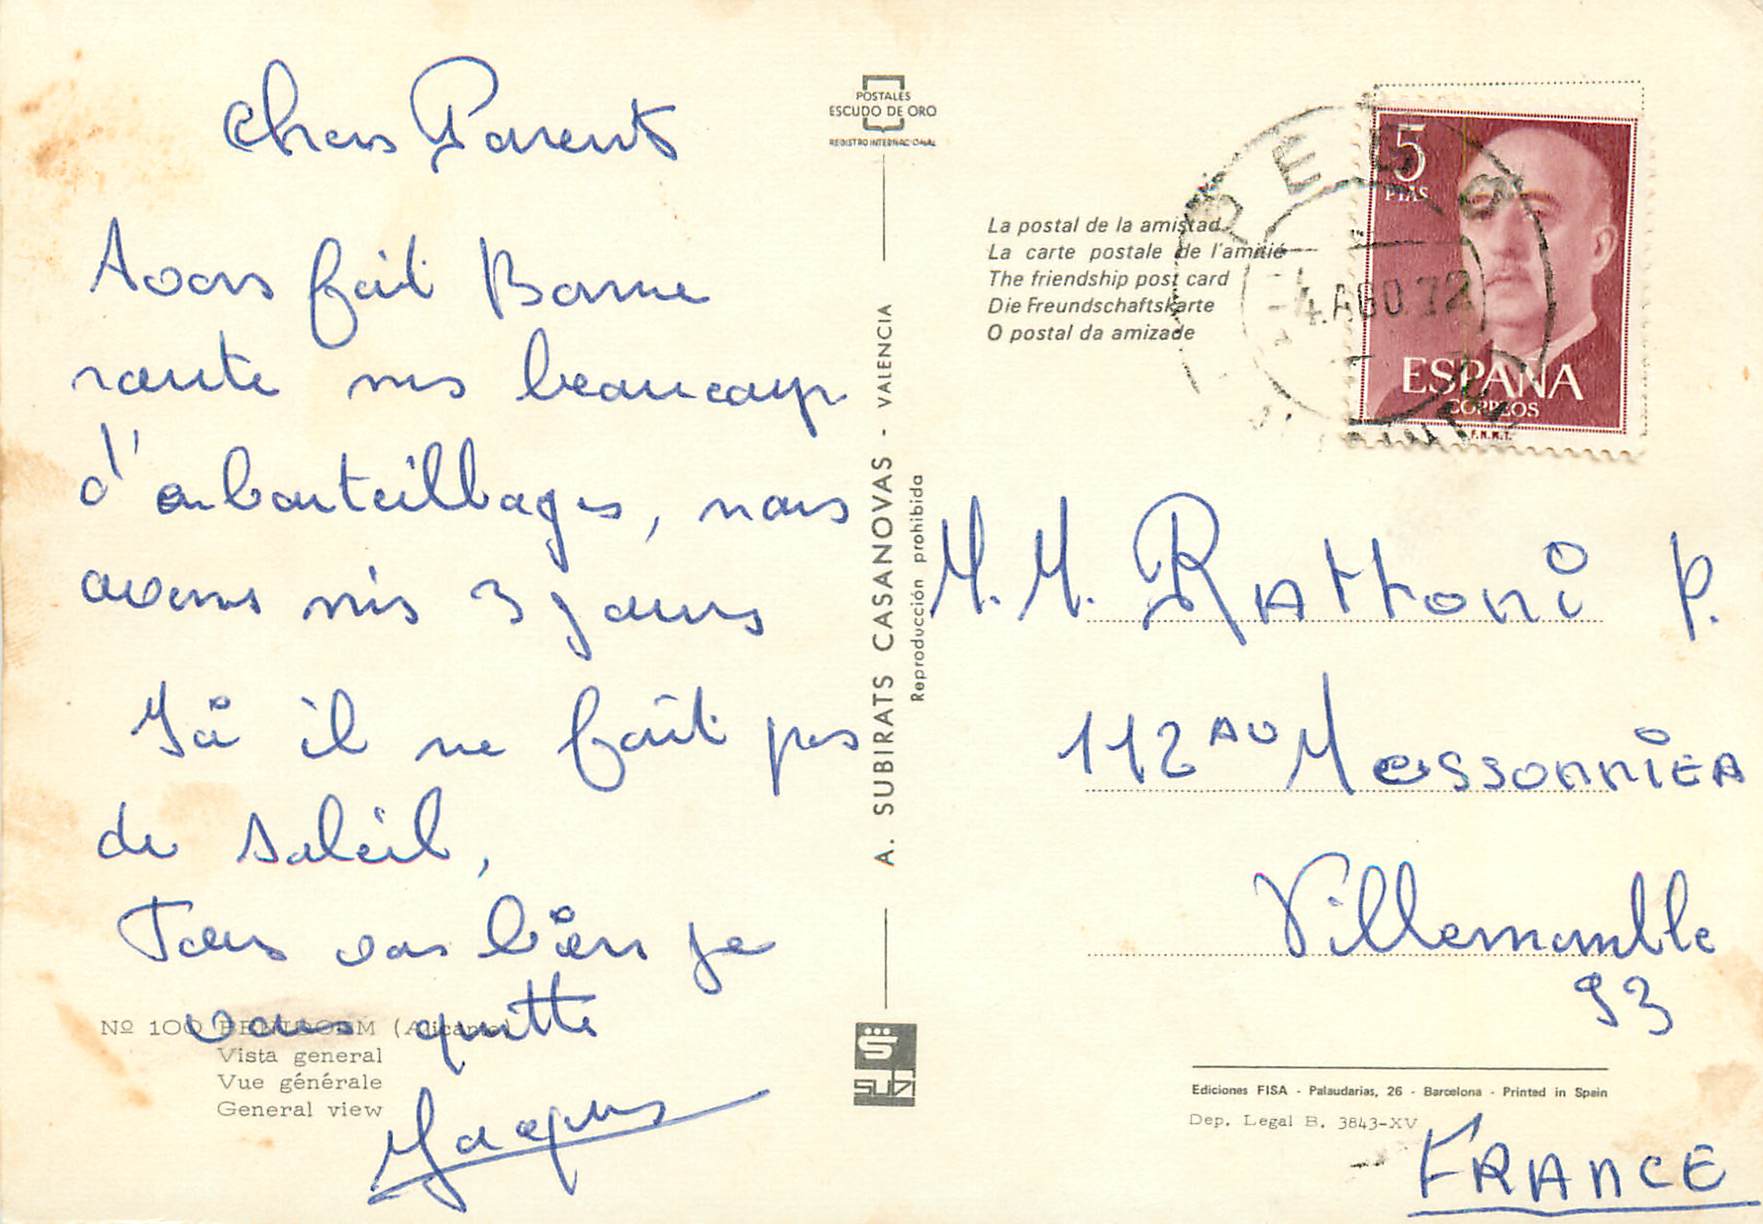 Chers Parents
Avons fait Bonne
route mes beaucoup
d'enbouteillages, nous
avons mis 3 jours
Ici il ne fait pas
de soleil,
Tous vas bien je
vous quitte
Jacques
Nº 100 BENIDORM (Alicante)
Vista general
Vue générale
General view
POSTALES
ESCUDO DE ORO
REGISTRO INTERNACIONAL
A. SUBIRATS CASANOVAS - VALENCIA
Reproducción prohibida
SUBI
La postal de la amistad
La carte postale de l'amitié
The friendship post card
Die Freundschaftskarte
O postal da amizade
5
PTAS
ESPAÑA
CORREOS
F.N.M.T.
4.AGO.72
M.M. Rattoni P.
112 AV Messonnier
Villemomble
93
Ediciones FISA - Palaudarias, 26 - Barcelona - Printed in Spain
Dep. Legal B. 3843-XV
FRANCE